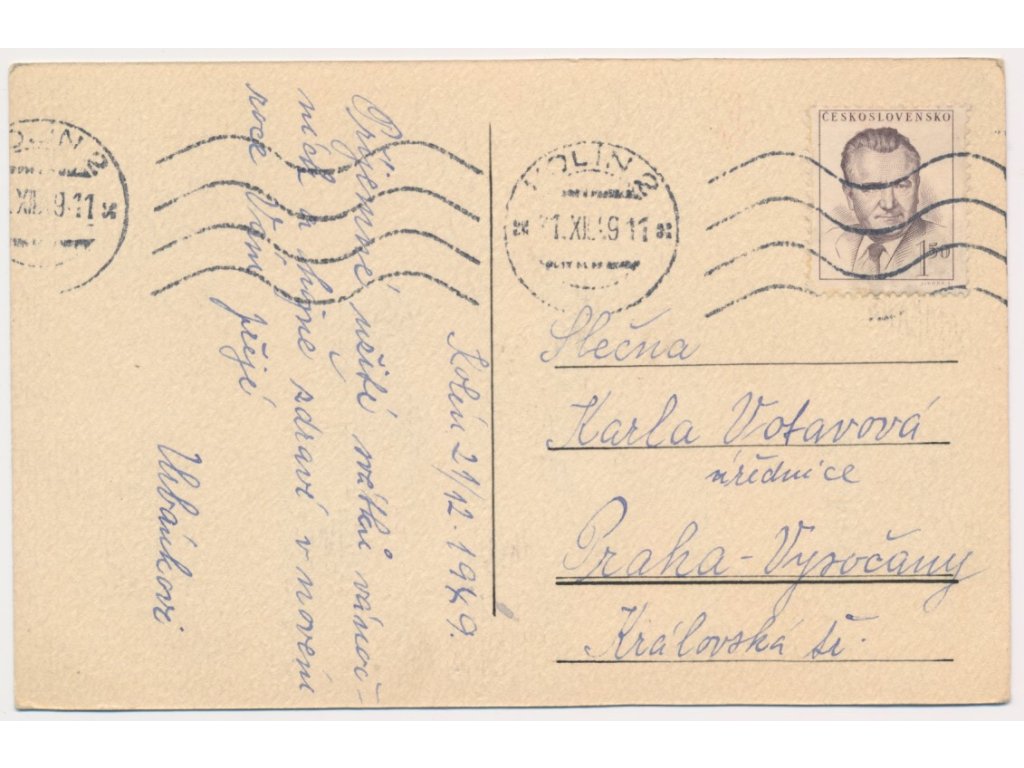 Kolín 21/12. 1949.
Příjemné užití svátků vánoč-
ních a hojne zdraví v novém
roce Vám přejí
Urbánkovi
KOLÍN 2
XII. 49-11
KOLÍN 2
21.XII.49 11
ČESKOSLOVENSKO
1.50
Slečna
Karla Votavová
úřednice
Praha-Vysočany
Královská tř.